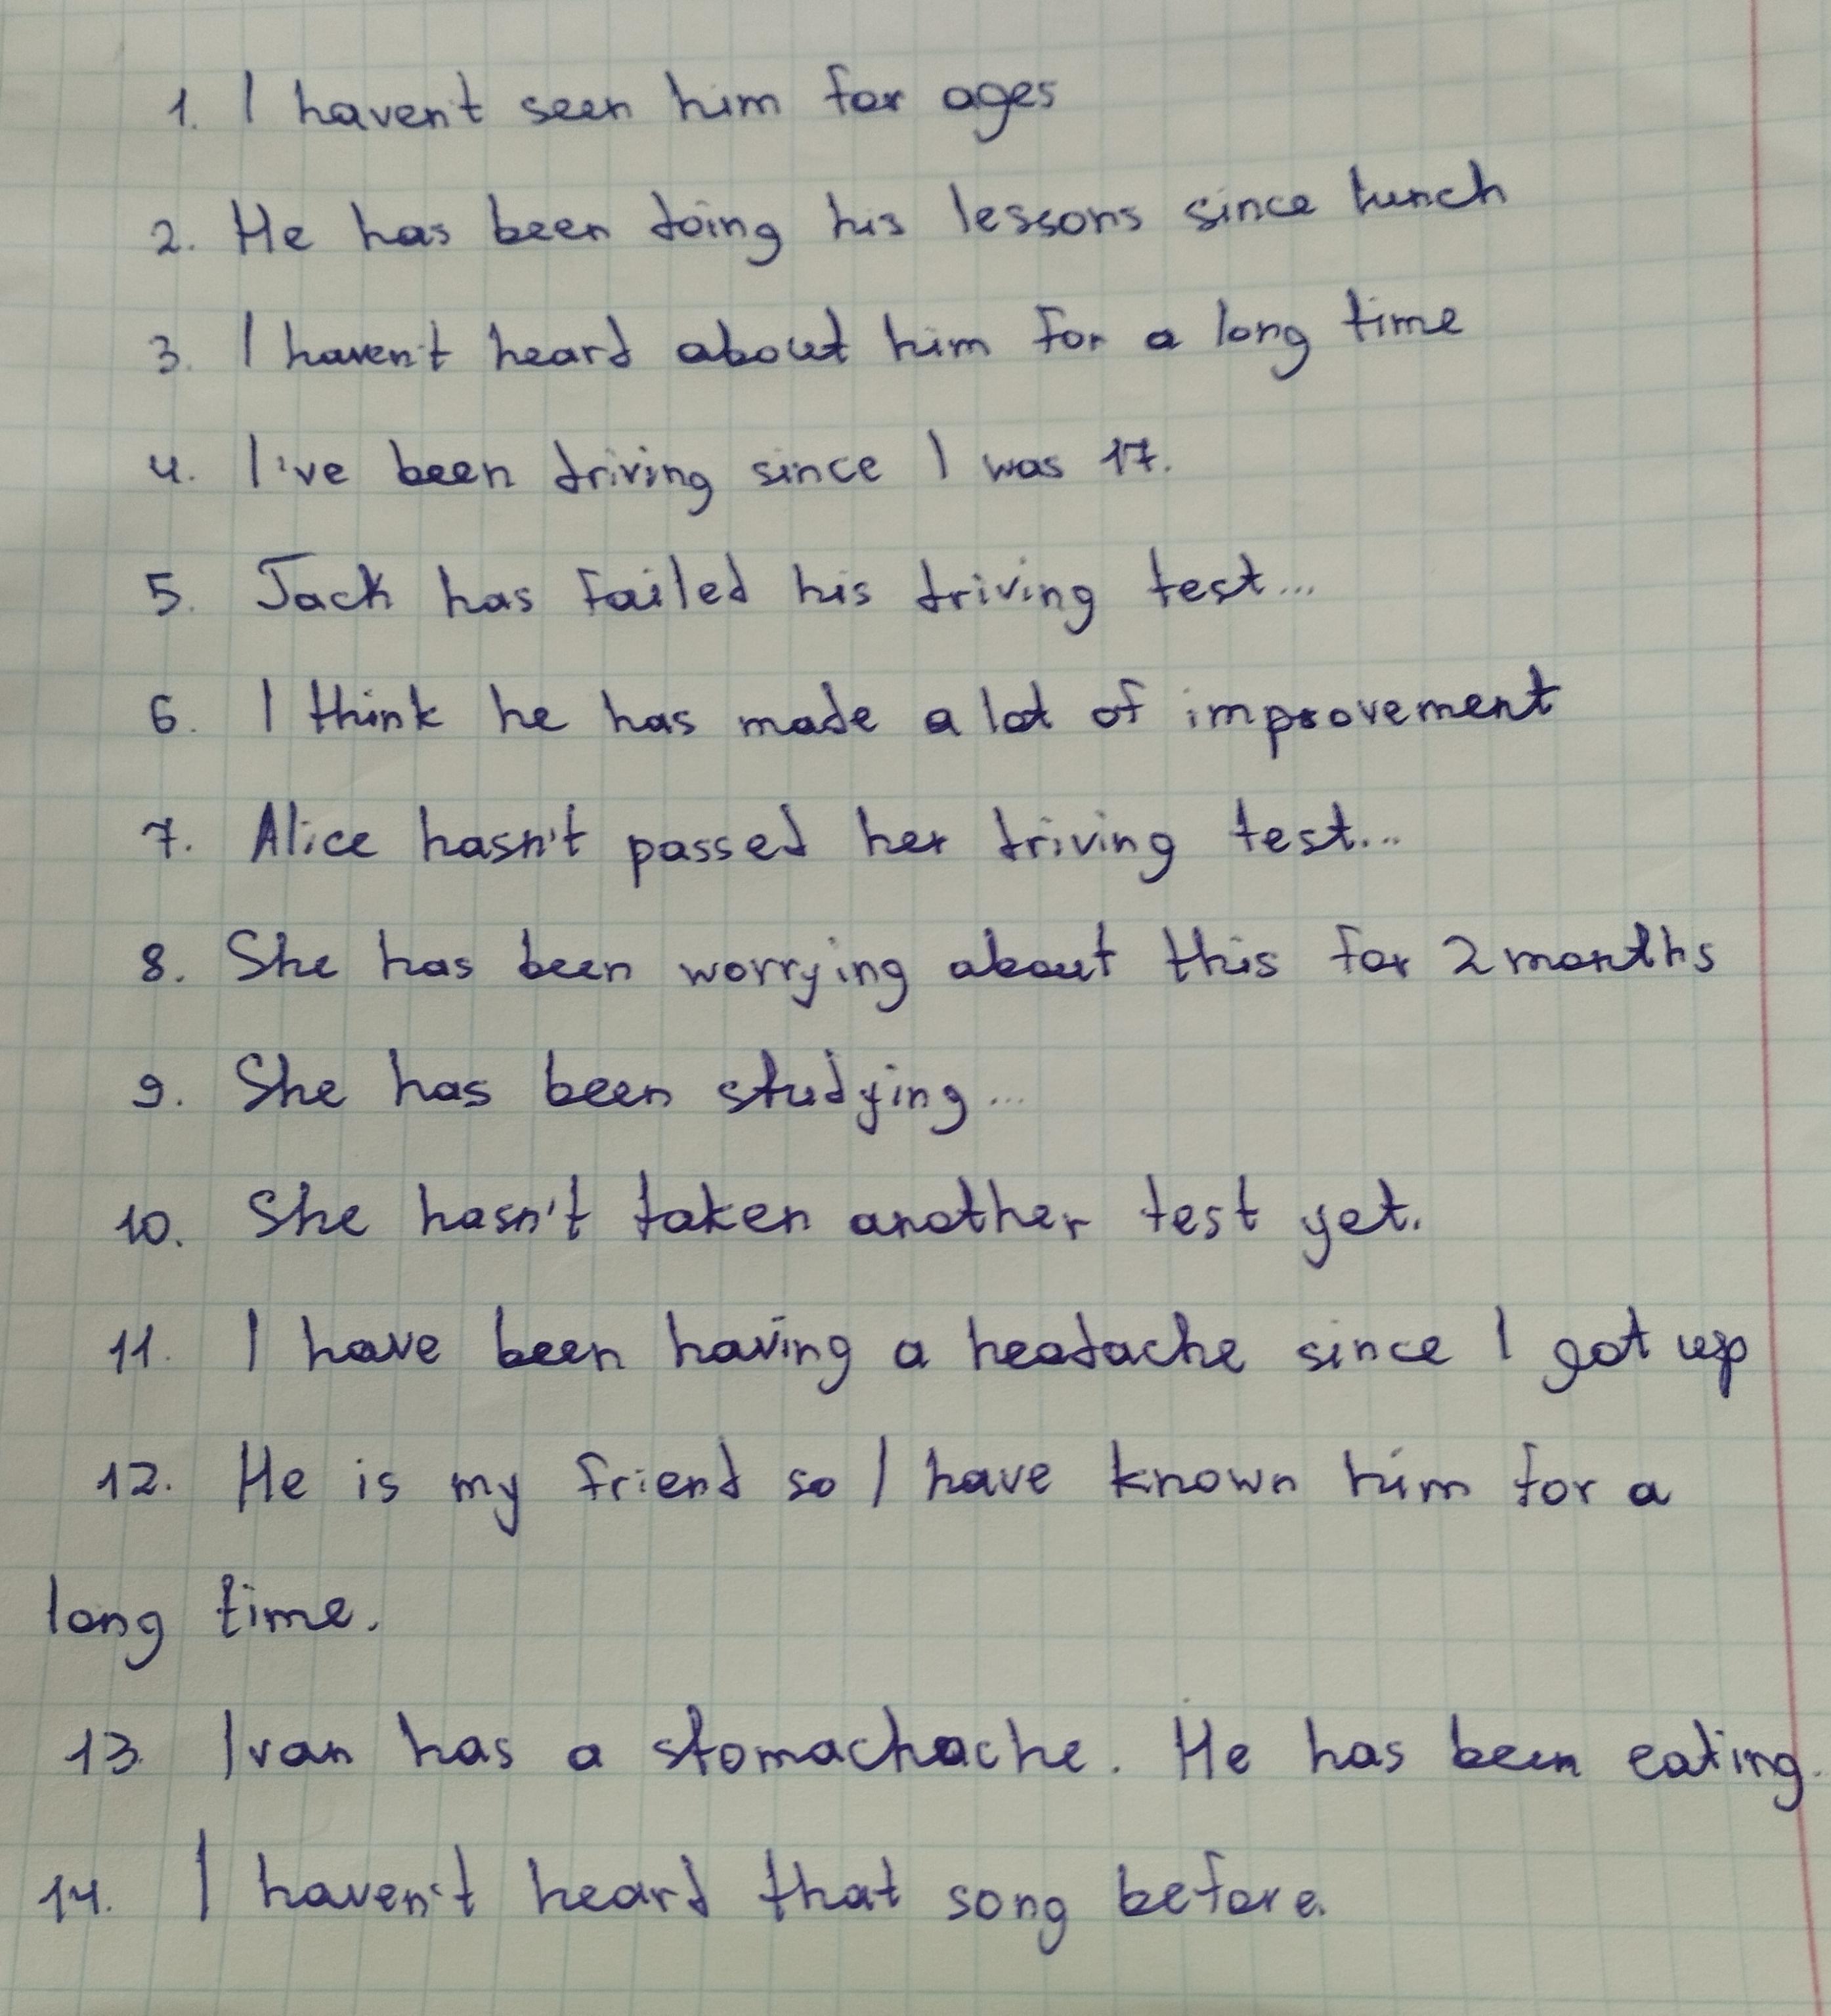 1. I haven't seen him for ages
2. He has been doing his lessons since lunch
3. I haven't heard about him for a long time
4. I've been driving since I was 17.
5. Jack has failed his driving test...
6. I think he has made a lot of improvement
7. Alice hasn't passed her driving test...
8. She has been worrying about this for 2 months
9. She has been studying...
10. She hasn't taken another test yet.
11. I have been having a headache since I got up
12. He is my friend so I have known him for a
long time.
13. Ivan has a stomachache. He has been eating.
14. I haven't heard that song before.